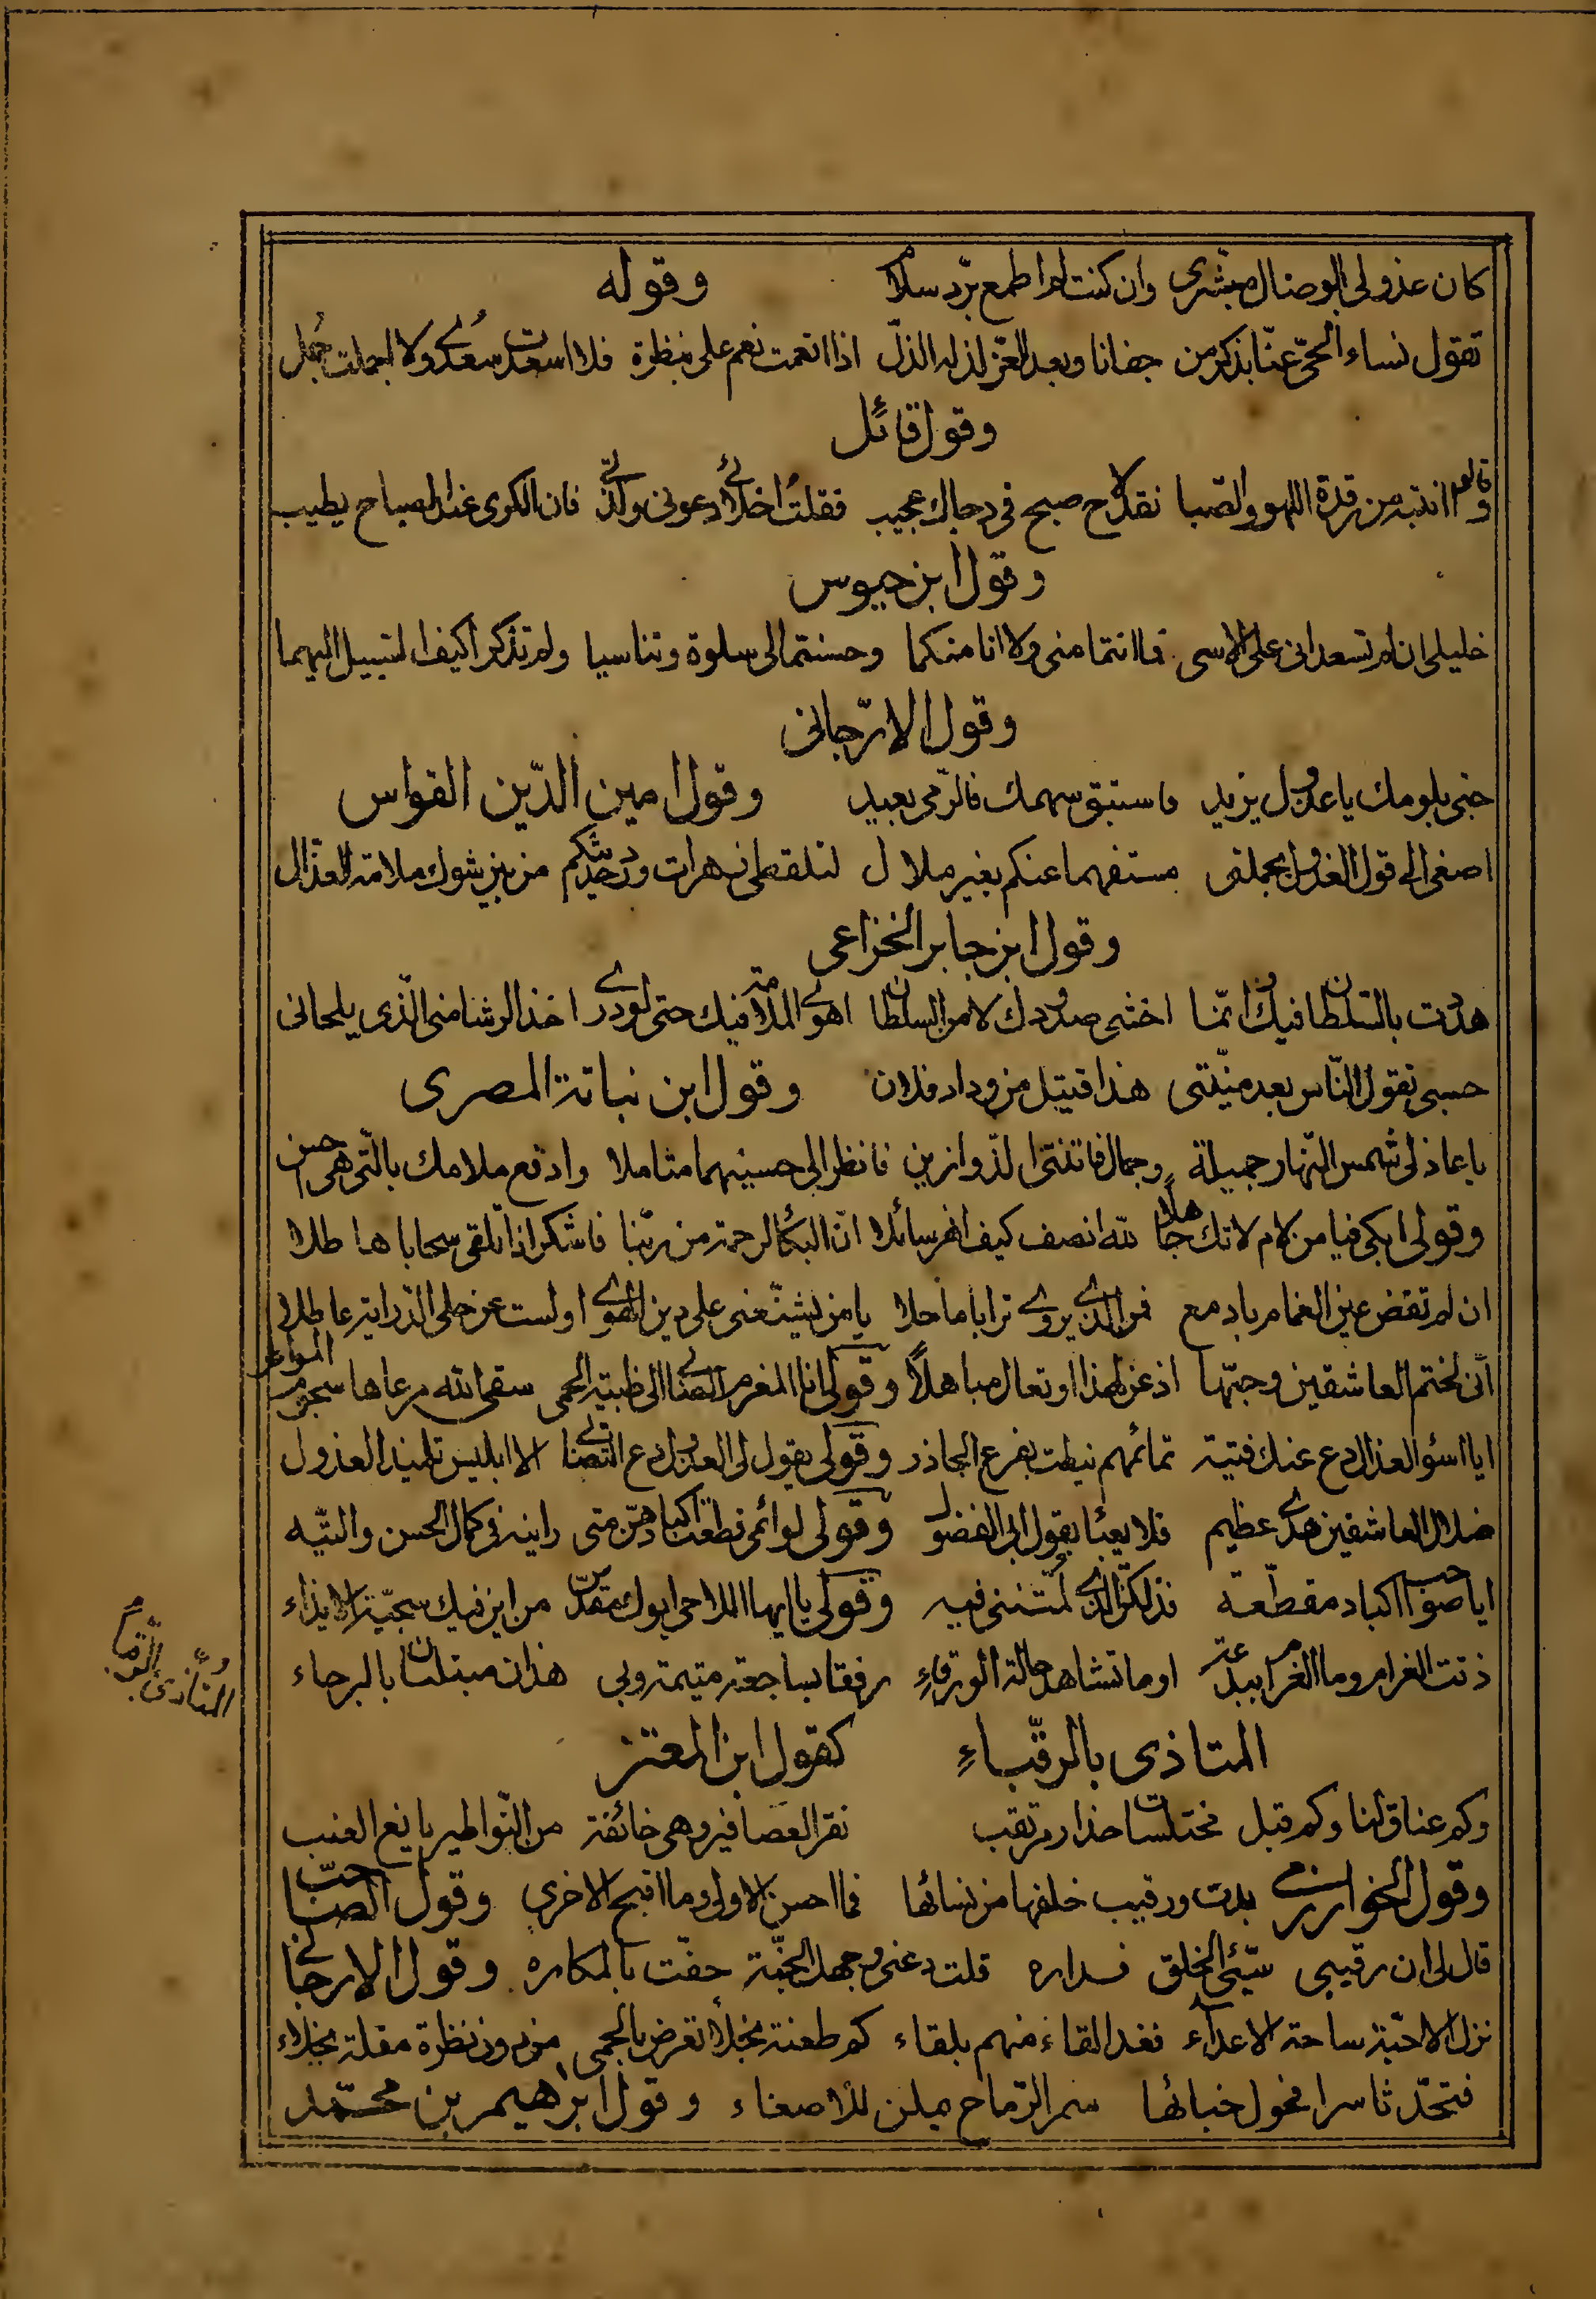 كان عذولى بالوصال مبشرى وان كنت لم اطمع برد سلام وقوله
تقول نساء الحىّ عنّا بذكر من جفانا وبعد العزّ لذ له الذلّ اذا انعمت نعم علىّ بنظرة فلا اسعدت سعدى ولا اجملت جمل
وقول قائل
وقالوا انتبه من رقدة اللهو والصّبا فقد لاح صبح فى دجاك عجيب فقلت اخلائى دعونى ولذّتى فان الكرى عند الصباح يطيب
وقول ابن حيوس
خليلى ان لم تسعدانى على الاسى فما انتما منى ولا انا منكما وحسنتما لى سلوة وتناسيا ولم تذكرا كيف السبيل اليهما
وقول الارّجانى
حبى بلومك يا عذول يزيد فاستبق سهمك فالرّمى بعيد وقول امين الدّين القواس
اصغى الى قول العذول بجملتى مستفهما عنكم بغير ملال لتلقطى زهرات ورد حديثكم من بين شوك ملامة العذّال
وقول ابن جابر الخزاعى
هددت بالسّلطان فيك وانّما اخشى صدودك لا من السلطان اهوى الملامة فيك حتى لو درى اخذ الرشا منى الّذى يلحانى
حسبى بقول النّاس بعد منيّتى هذا قتيل من وداد فلان وقول ابن نباتة المصرى
يا عاذلى شمس النّهار جميلة وجمال فاتنتى الذّ وازين فانظر الى حسنيهما متاملا وادفع ملامك بالّتى هى احسن
وقولى ابكى فيا من لام لا تك جاهلا لله انصف كيف انهر سائلا انّ البكاء لرحمة من ربّنا فاشكر اذا تلقى سحابا هاطلا
ان لم تفض عين الغمام بادمع فمن الذى يروى ترابا ماحلا يا من يشنّعنى على دين الهوى اولست عن حلى الدّراية عاطلا
انّى لختم العاشقين وحبّها اذعن لهذا او تعال مباهلاً وقولى انا المغرم العانى الى ظبية الحمى سقى الله مرعاها سجوم المواطر
ايا اسؤ العذال دع عنك فتية تمائمهم نيطت بفرع الجاذر وقولى يقول لى العذول دع التصابى الا ابليس تلميذ العذول
ضلال العاشقين هدى عظيم فلا يعبأ بقول ابى الفضول وقولى لوائمى قطعت اكبادهنّ متى راينه فى كمال الحسن والتّيه
ايا صواحب اكباد مقطّعة فذلكنّ الذى لمتننى فيه وقولى يا ايها اللاحى ابوك مقدّس من اين فيك سجيّة الايذاء
ذقت الغرام وما الغرام ببدعة او ما تشاهد حالة الورقاءِ رفقا بساجعة متيمة وبى هذان مبتليان بالبرحاء
المتاذى بالرقباءِ كقول ابن المعتز
وكم عناق لنا وكم قبل مختلسات حذار مرتقب نقر العصافير وهى خائفة من النّواطير يانع العنب
وقول الخوارزمى بدت ورقيب خلفها من نسائها فما احسن الاولى وما اقبح الاخرى وقول الصّاحب
قال لى ان رقيبى سيّئ الخلق فداره قلت دعنى وجهك الجنّة حفّت بالمكاره وقول الارجانى
نزل الاحبّة ساحة الاعدآء فغدا لقاء منهم بلقاء كم طعنة نجلاء تعرض بالحمى من دون نظرة مقلة نجلاء
فتحدّثا سرا فحول خبائها سمر الرّماح ميلن للاصغاء وقول ابراهيم بن محمّد
المتأذى بالرقباء